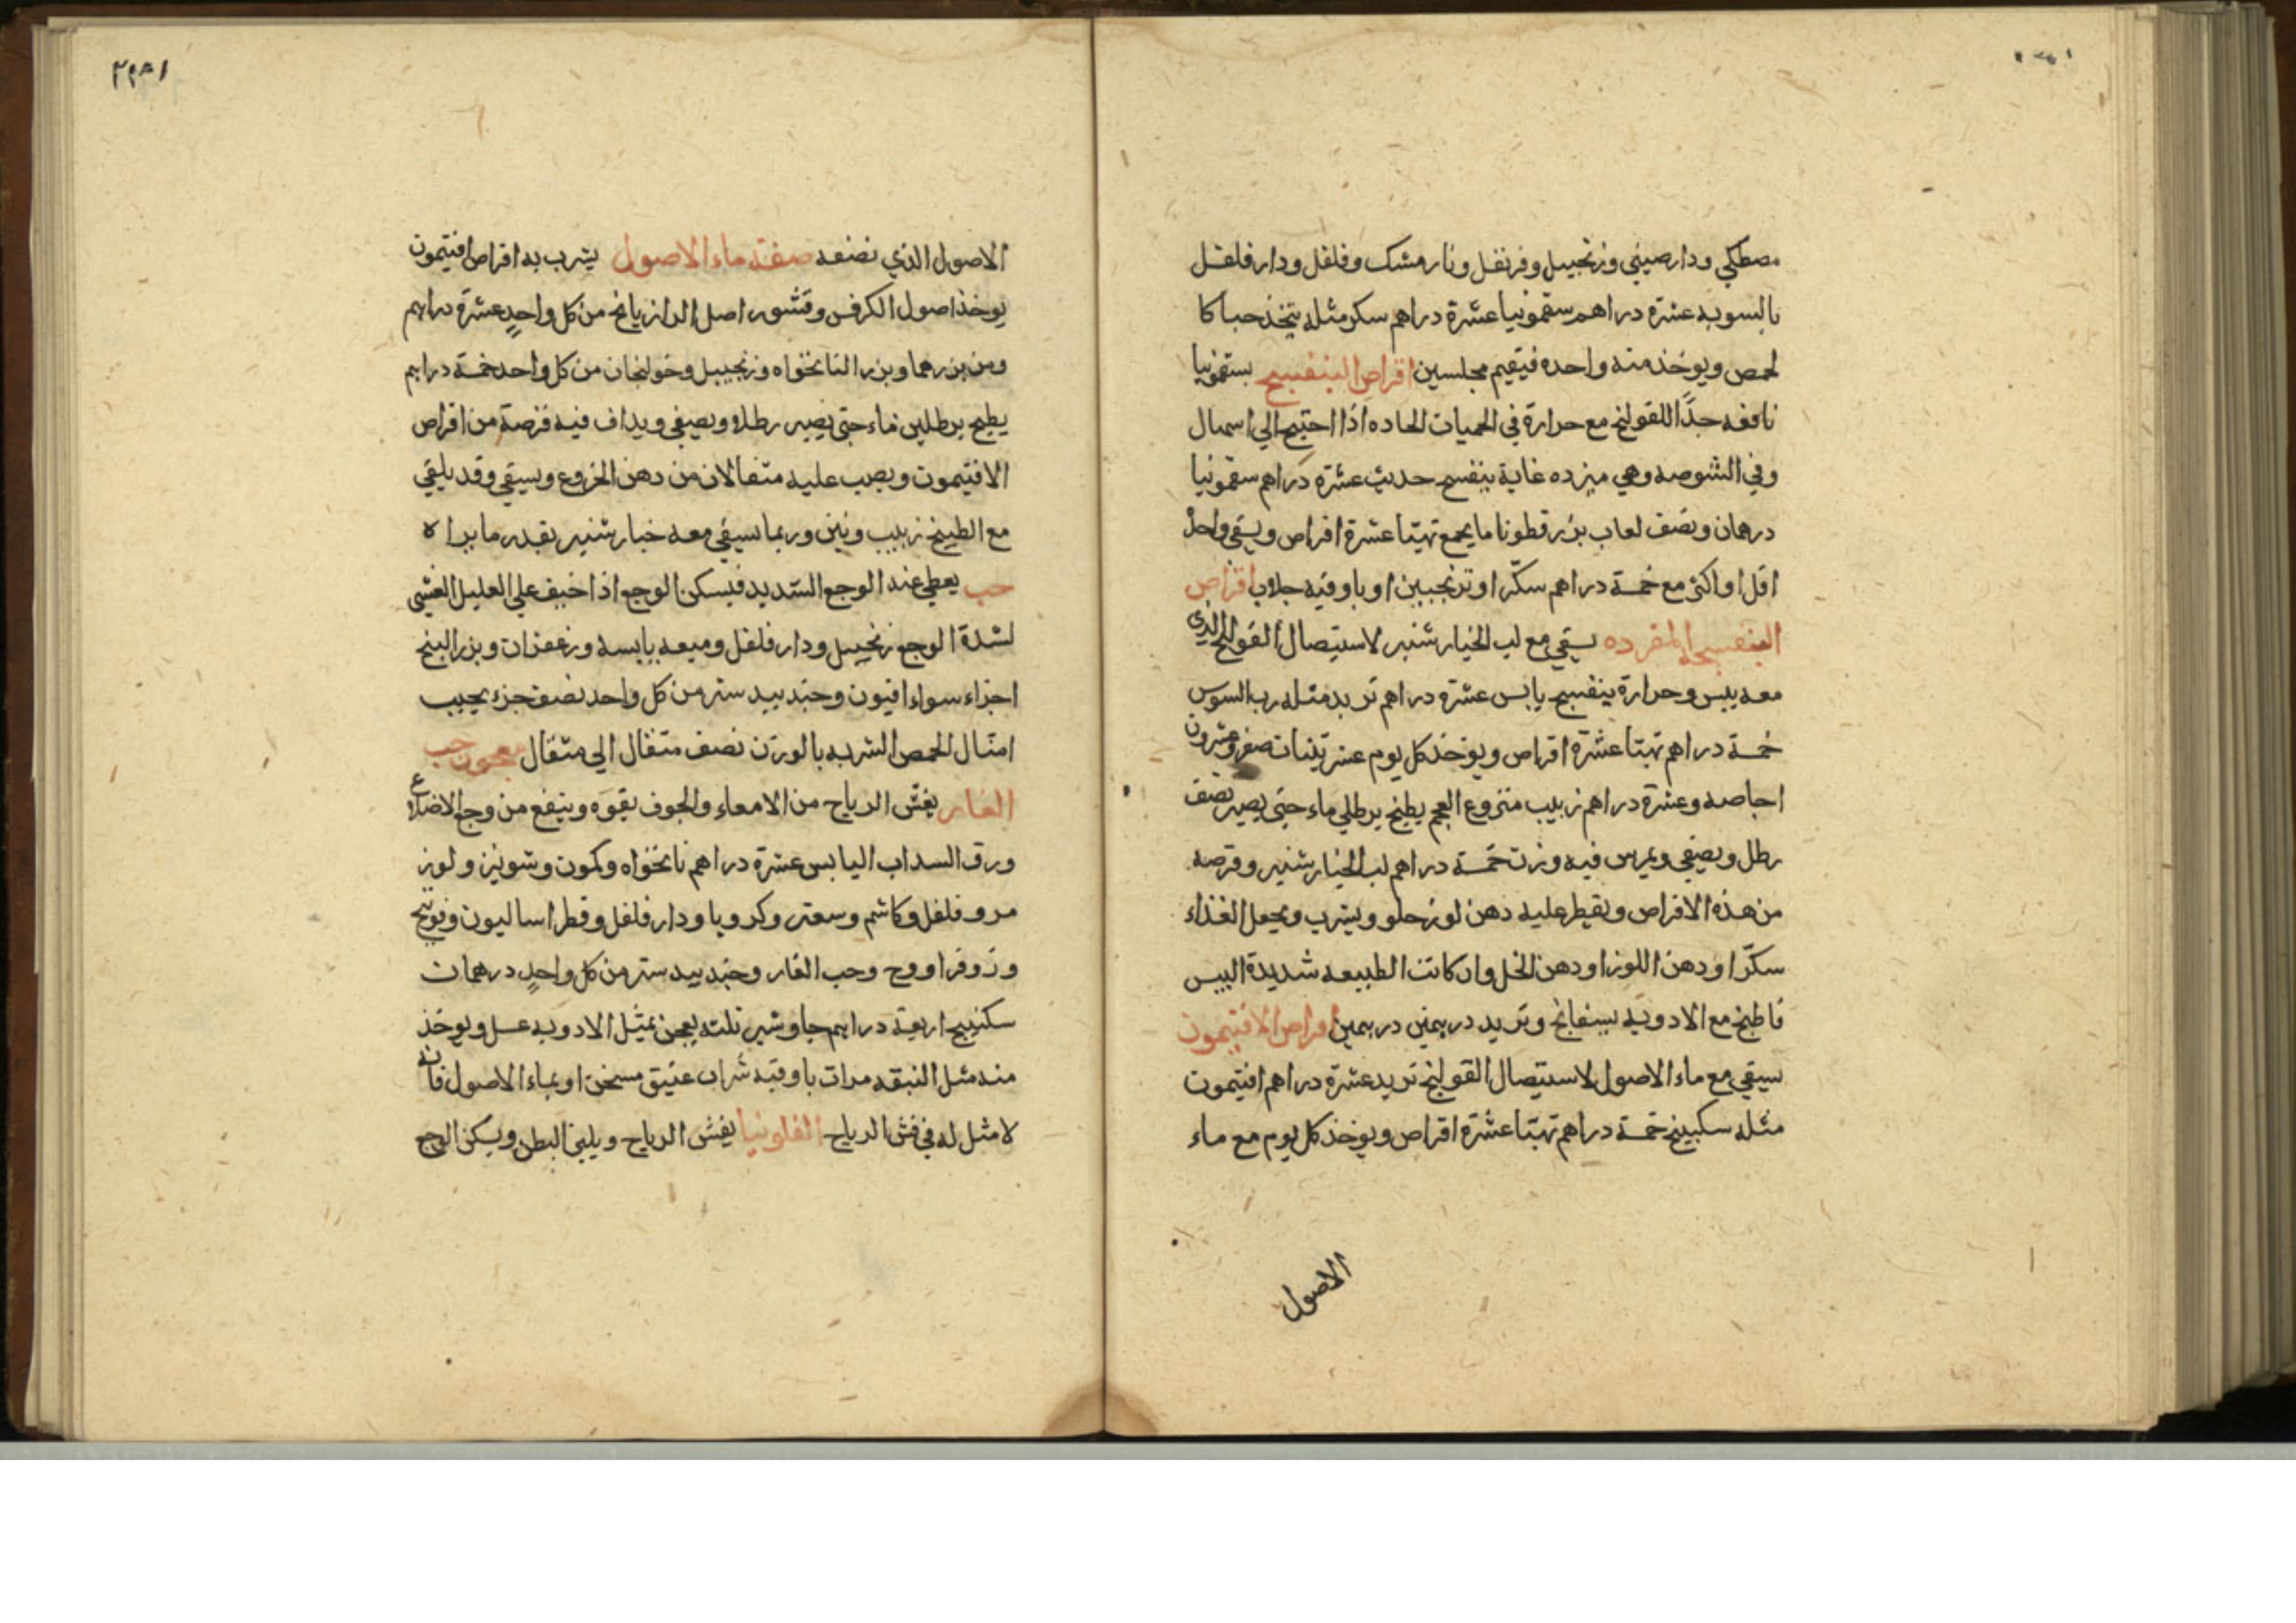 مصطكي ودارصيني وزنجبيل وقرنفل ونارمشك وفلفل ودارفلفل
بالسويه عشرة دراهم سقمونيا عشرة دراهم سكر مثله يتخذ حبا كا
لحمص ويوخذ منه واحده فيقيم مجلسين اقراص البنفسج بسقمونيا
نافعه جدًّا للقولنج مع حرارة في الحميات الحاده اذا احتيج الي اسهال
وفي الشوصه وهي مبرده غاية بنفسج حديث عشرة دراهم سقمونيا
درهمان ونصف لعاب بزر قطونا ما يجمع تهيّا عشرة اقراص ويسقي واحد
اقل او اكثر مع خمسة دراهم سكّر او ترنجبين او باوقيه جلاب اقراص
البنفسجه المفرده يسقي مع لب الخيارشنبر لاستيصال القولنج الذي
معه يبس وحرارة بنفسج يابس عشرة دراهم تربد مثله رب السوس
خمسة دراهم تهيّا عشرة اقراص ويوخذ كل يوم عشر تينات صفر وعشرون
اجاصه وعشرة دراهم زبيب منزوع العجم يطبخ برطلي ماء حتي يصير نصف
رطل ويصفي ويمرس فيه وزن خمسة دراهم لب الخيارشنبر وقرصه
من هذه الاقراص ويقطر عليه دهن لوز حلو ويشرب ويجعل الغذاء
سكّرا ودهن اللوز او دهن الخل وان كانت الطبيعه شديدة اليبس
فاطبخ مع الادويه بسفايج وتربد درهمين درهمين اقراص الافتيمون
يسقي مع ماء الاصول لاستيصال القولنج تربد عشرة دراهم افتيمون
مثله سكبينج خمسة دراهم تهيّا عشرة اقراص ويوخذ كل يوم مع ماء
الاصول
الاصول الذي نصنعه صفة ماء الاصول يشرب به اقراص افتيمون
يوخذ اصول الكرفس وقشور اصل الرازيانج من كل واحدٍ عشرة دراهم
ومن بزرهما وبزر النانخواه وزنجبيل وخولنجان من كل واحد خمسة دراهم
يطبخ برطلين ماء حتي يصير رطلا ويصفي ويداف فيه قرصة من اقراص
الافتيمون ويصب عليه مثقالان من دهن الخروع ويسقي وقد يلقي
مع الطبيخ زبيب وتين وربما يسقي معه خيارشنبر بقدر ما يراه
حب يعطي عند الوجع الشديد فيسكن الوجع اذا خيف علي العليل الغشي
لشدة الوجع زنجبيل ودارفلفل وميعه يابسه وزعفران وبزر البنج
اجزاء سواء افيون وجندبيدستر من كل واحد نصف جزء يحبب
امثال الحمص الشربه بالوزن نصف مثقال الي مثقال معجون حب
الغار يفشّ الرياح من الامعاء والجوف بقوه وينفع من وجع الاضلاع
ورق السداب اليابس عشرة دراهم نانخواه وكمون وشونيز ولوز
مر وفلفل وكاشم وسعتر وكرويا ودارفلفل وقطراساليون وفوتنج
وزوفرا ووج وحب الغار وجندبيدستر من كل واحدٍ درهمان
سكنبيج اربعة دراهم جاوشير ثلثه يعجن بمثل الادويه عسل ويوخذ
منه مثل النبقه مرات باوقيه شراب عتيق مسخن او بماء الاصول فانه
لا مثل له في فش الرياح الفلونيا يفش الرياح ويلين البطن ويسكن الوجع